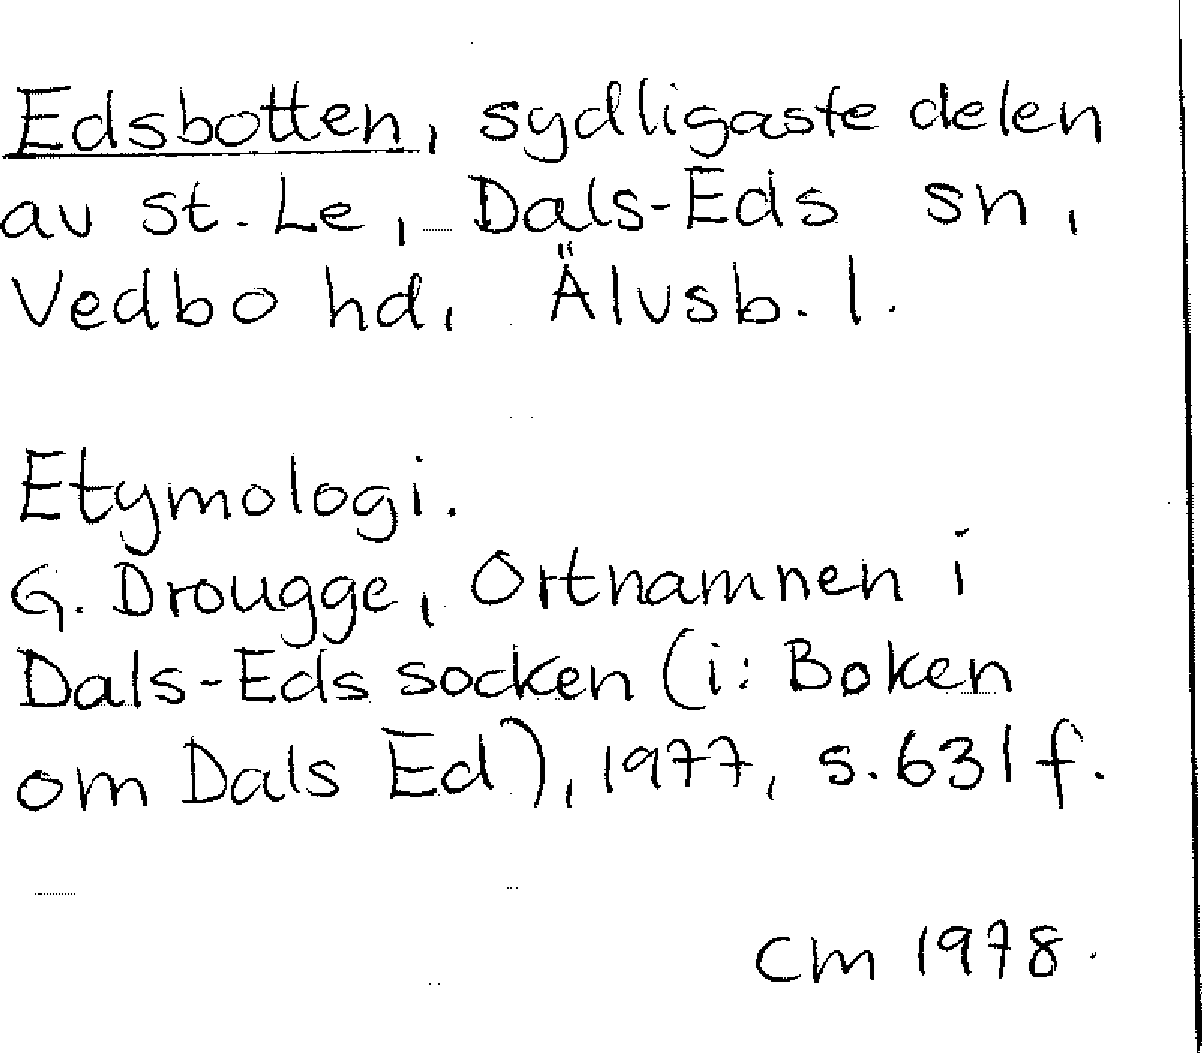 Edsbotten, sydligaste delen
av st. Le, Dals-Eds sn,
Vedbo hd, Älvsb. l.
Etymologi.
G. Drougge, Ortnamnen i
Dals-Eds socken (i: Boken
om Dals Ed), 1977, s. 631 f.
CM 1978.